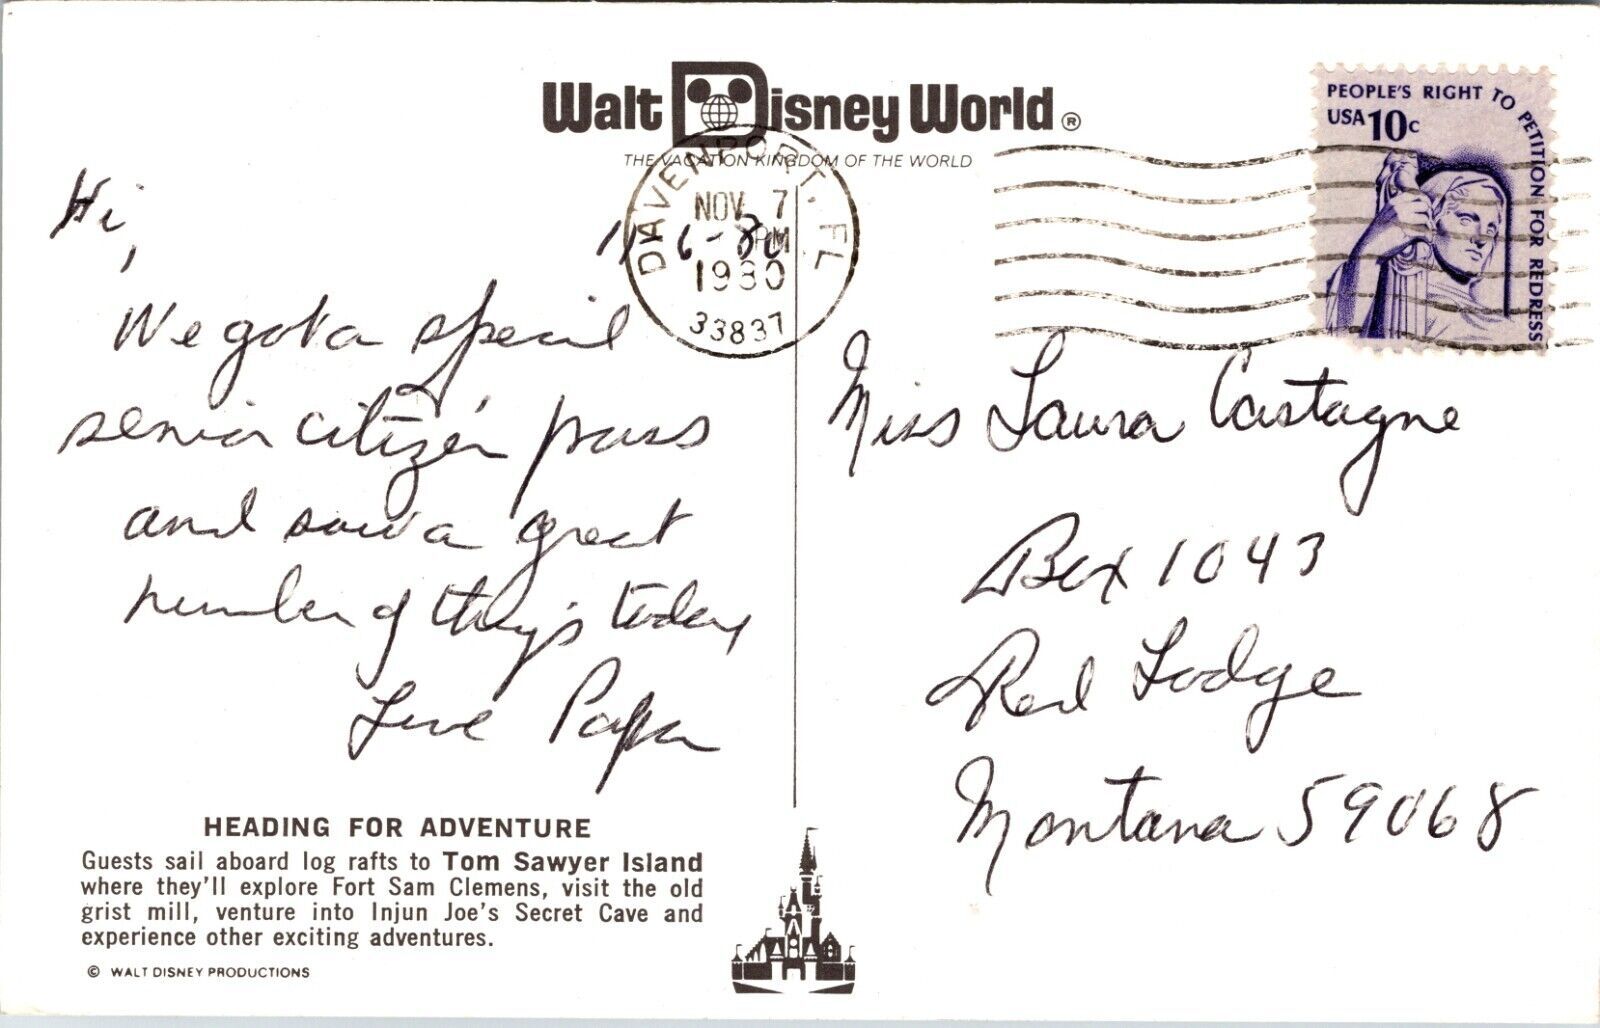 Walt Disney World®
THE VACATION KINGDOM OF THE WORLD
PEOPLE'S RIGHT TO PETITION FOR REDRESS
USA 10c
DAVENPORT, FL
NOV 7
PM
1980
33837
Hi,
11-6-80
We got a special
senior citizen pass
and saw a great
number of things today
Love Papa
Miss Laura Castagne
Box 1043
Red Lodge
Montana 59068
HEADING FOR ADVENTURE
Guests sail aboard log rafts to Tom Sawyer Island
where they'll explore Fort Sam Clemens, visit the old
grist mill, venture into Injun Joe's Secret Cave and
experience other exciting adventures.
© WALT DISNEY PRODUCTIONS